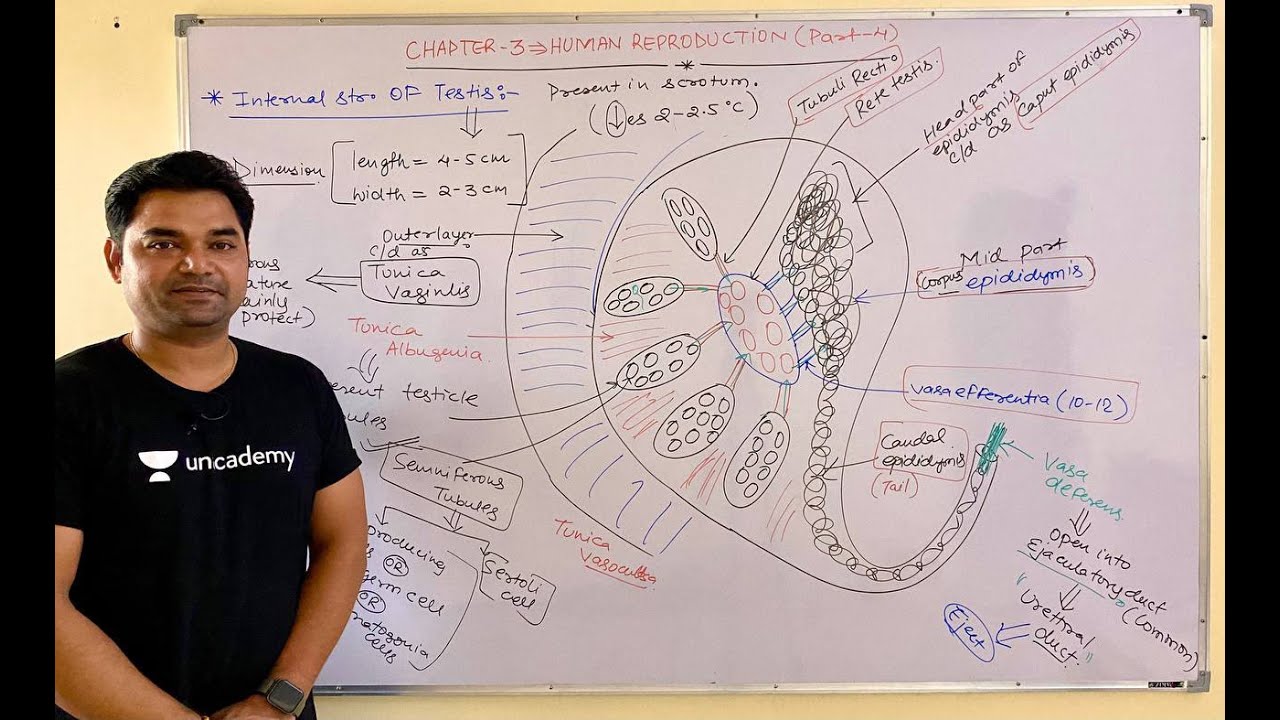 CHAPTER-3⇒HUMAN REPRODUCTION (Part-4)
* Internal str. OF Testis:-
Present in scrotum.
(↓es 2-2.5°C)
Dimension
length = 4-5cm
width = 2-3cm
Outerlayer
c/d as
Tunica
Vaginlis
protect)
Tunica
Albugenia.
testicle
Semniferous
Tubules
producing
OR
germ cell
OR
cells
Sertoli
cell
Tunica
Vasoculsa
Tubuli Recti
Rete testis.
Head part of
epididymis
c/d as Caput epididymis
Mid part
Corpus epididymis
vasa efferentia (10-12)
Caudal
epididymis
(Tail)
Vasa
deferens.
Open into
Ejaculatory duct
(Common)
"Urethral
duct."
Eject
unacademy